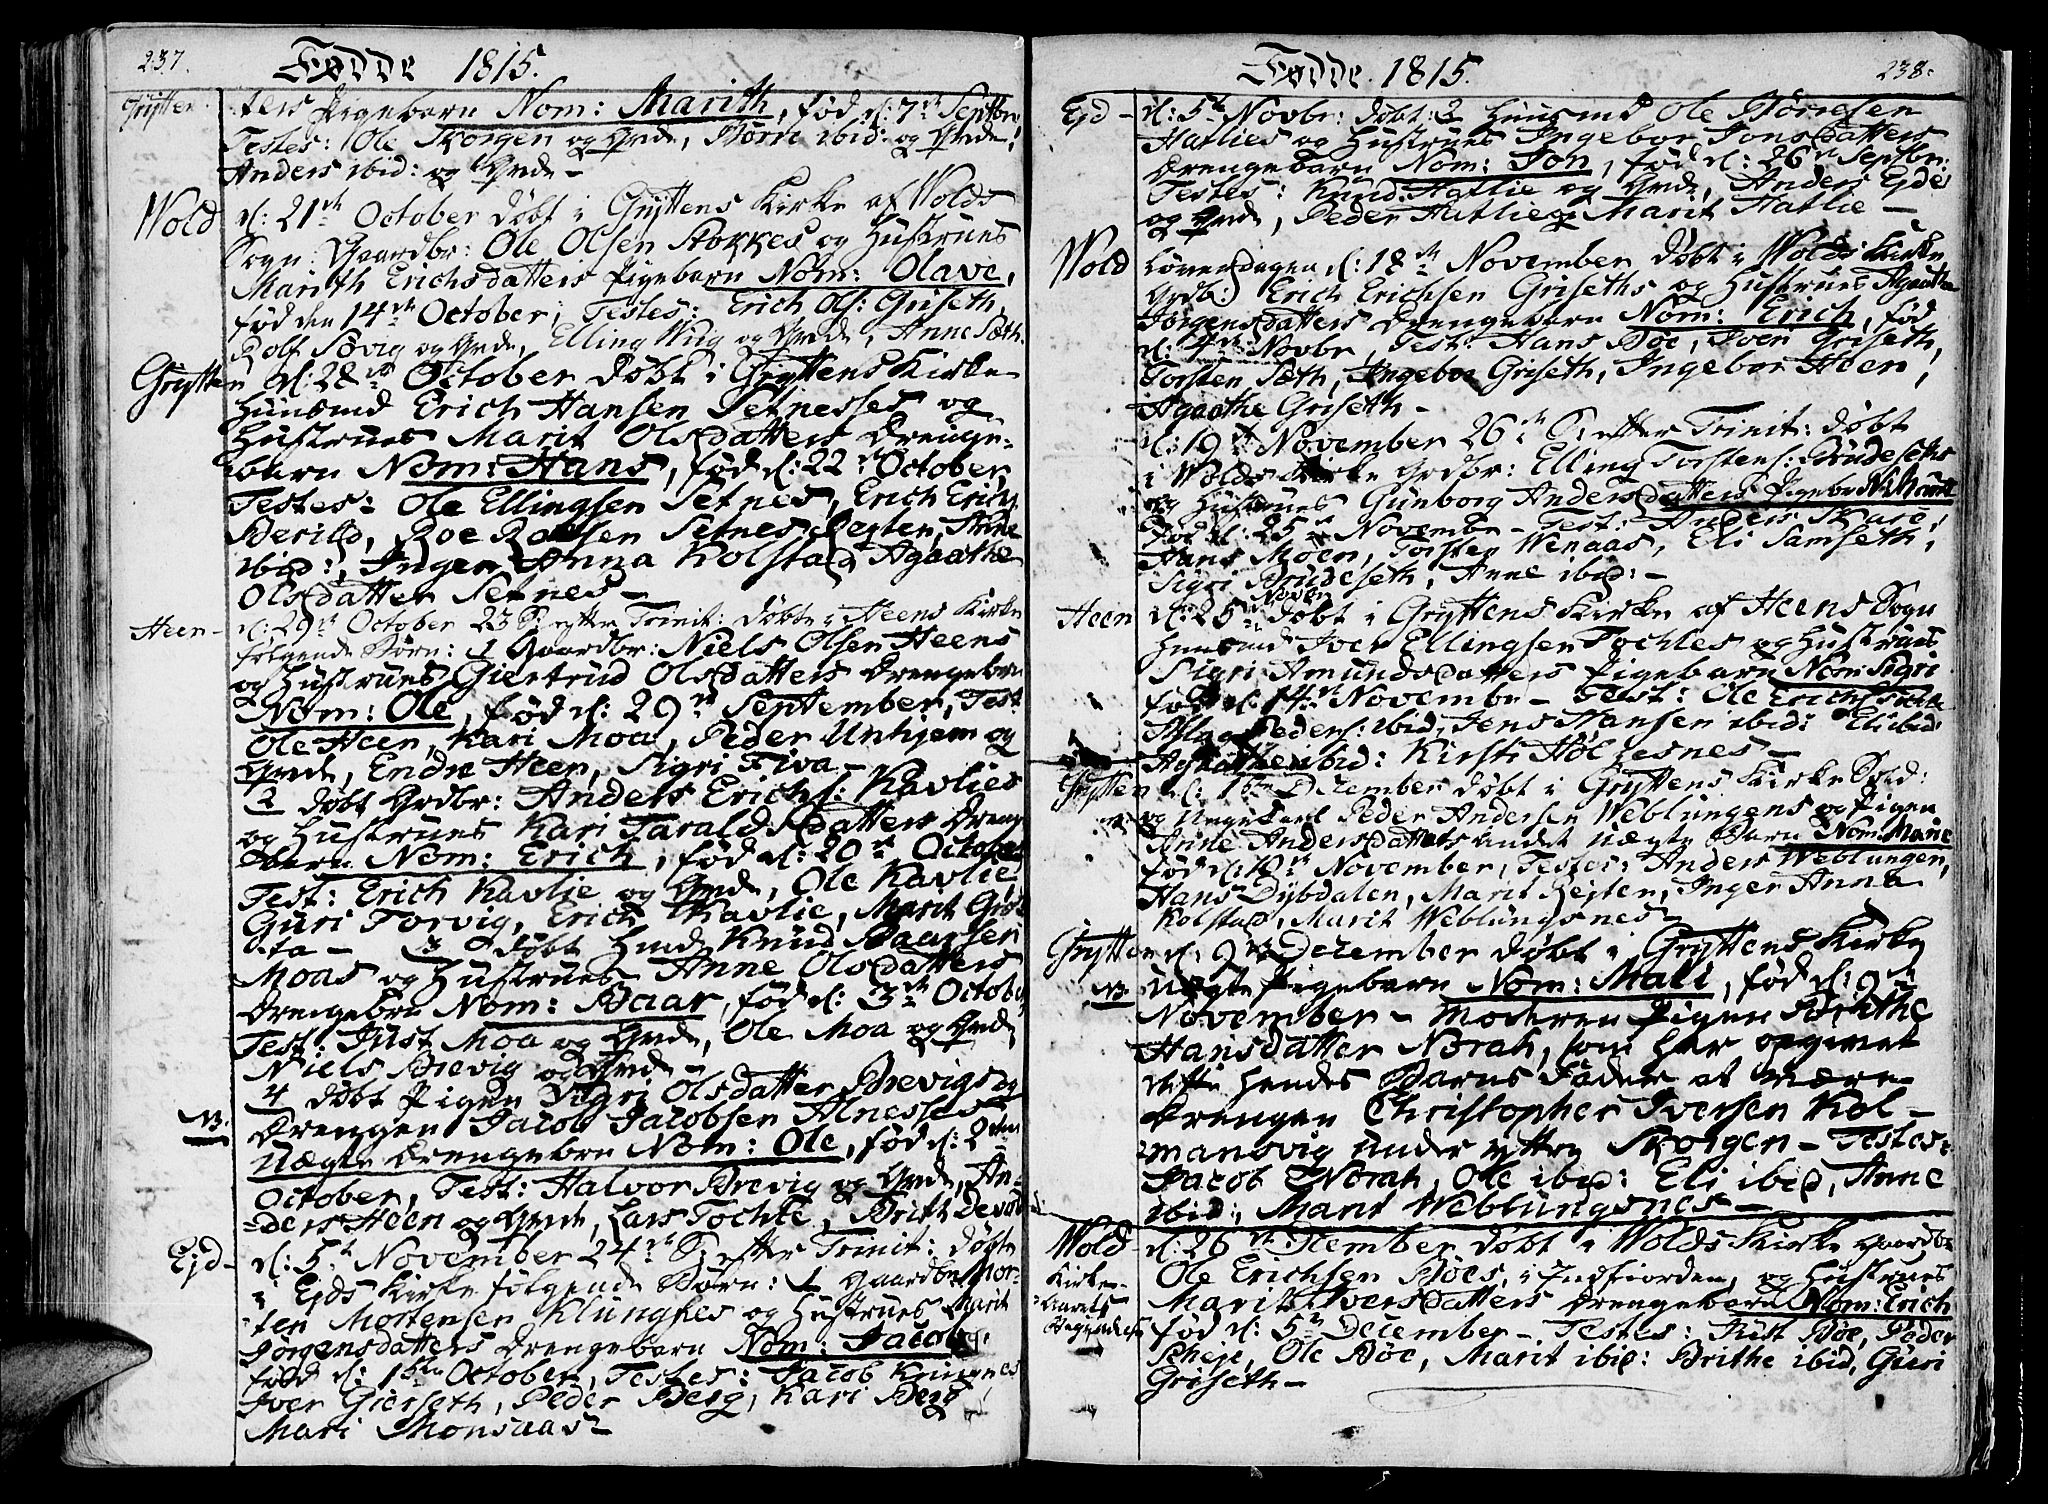 237.
Fødde 1815.
Grytten. ters Pigebarn Nom: Marith, fød d: 7de Septbr.
Testes: Ole Skorgen og Qvde, Børre ibid: og Qvde,
Anders ibid: og Qvde –
Wold d: 21de October døbt i Gryttens Kirke af Wolds
Sogn: Gaardbr: Ole Olsen Stokkes og Hustrues
Marith Erichsdatters Pigebarn Nom: Olave,
fød den 14de October, Testes: Erich Ols: Griseth,
Rolf Søvig og Qvde, Elling Wiig og Qvde, Anne Sæth.
Grytten d: 28de October døbt i Gryttens Kirke
Huusmd Erich Hansen Setnesses og
Hustrues Marit Olsdatters Drenge-
barn Nom: Hans, fød d: 22de October,
Testes: Ole Ellingsen Setnes, Erich Erichs.
Berild, Roe Roesen Setnes Rejten,
ibid:, Inger Anna Kolstad Agaathe
Olsdatter Setnes –
Heen – d: 29de October 23 S: efter Trinit: døbte i Heens Kirke
følgende Børn: 1 Gaardbr: Niels Olsen Heens
og Hustrues Giertrud Olsdatters Drengebrn
Nom: Ole, fød d: 29de September, Test:
Ole Heen, Kari Moa, Peder Unhjem og
Qvde, Endre Heen, Sigri Tiva –
2 døbt Grdbr: Anders Erichs: Kavlies
og Hustrues Kari Taraldsdatters Drenge-
barn Nom: Erich, fød d: 20de October
Test: Erich Kavlie og Qvde, Ole Kavlie,
Guri Torvig, Erich Kavlie, Marit Grøt-
ta – 3 døbt Hmd: Knud Baarsen
Moas og Hustrues Anne Olsdatters
Drengebrn Nom: Baar, fød d: 3de October,
Test: Just Moa og Qvde, Ole Moa og Qvde,
Niels Brevig og Qvde –
4 døbt Pigen Sigri Olsdatter Brevigs og
NB. Drengen Jacob Jacobsen Alnesses
Uægte Drengebrn Nom: Ole, fød d: 2den
October, Test: Halvor Brevig og Qvde, An-
ders Heen og Qvde, Lars Tochle, Brith Devold
Ejd – d: 5te November 24de S: efter Trinit: døbte
i Ejds Kirke følgende Børn: 1 Gaardbr Mor-
ten Mortensen Klungnes og Hustrues Marit
Jørgensdatters Drengebarn Nom: Jacob,
fød d: 15de October, Testes: Jacob Klungnes
Iver Gierseth, Peder Berg, Kari Berg
Mari Monsaas –
238.
Fødde 1815.
Ejd – d: 5te Novbr: døbt 2 Huusmd Ole Børresen
Hatlies og Hustrues Ingebor Jonsdatters
Drengebarn Nom: Jon, fød d: 26de Septbr:
Testes: Knud Hatlie og Qvde, Anders Ejde
og Qvde, Peder Hatlie og Marit Hatlie –
Wold Løverdagen d: 18de November døbt i Wolds Kirke
Grdb: Erich Erichsen Griseths og Hustrues Agaathe
Jørgensdatters Drengebarn Nom: Erich, fød
d: 4de Novbr, Test: Hans Bøe, Iver Griseth,
Torsten Sæth, Ingebor Griseth, Ingebor Heen,
Agaathe Griseth –
d: 19de November 26de S: efter Trinit: døbt
i Wolds Kirke Grdbr: Elling Torstens: Brudeseths
og Hustrues Gunborg Andersdatters Pigebr N: Marit
fød d: 25de Novembr – Test: Anders Skare,
Hans Moen, Torsten Wenaas, Eli Samseth,
Sigri Brudeseth, Anne ibid: –
Heen d: 25de Novbr døbt i Gryttens Kirke af Heens Sogn
Huusmd Iver Ellingsen Tochles og Hustrues
Sigri Amundsdatters Pigebarn Nom: Sigri
fød d: 14de Novembr – Test: Ole Erichs: Tochle
Aslag Peders: ibid, Jens Hansen ibid: Eli ibid:
Agaathe ibid: Kirsti Holjesnes –
Grytten d: 1ste December døbt i Gryttens Kirke Sold:
og Ungekarl Peder Andersen Weblungens og Pigen
Anne Andersdatters andet uægte Barn Nom: Marie
fød d: 10de November, Testes: Anders Weblungen,
Hans Dybdalen, Marit Rejten, Inger Anna
Kolstad, Marit Weblungsnes –
Grytten d: 9de December døbt i Gryttens Kirke
NB. Uægte Pigebarn Nom: Mali, fød d: 9de
November – Moderen Pigen Brithe
Hansdatter Norah, som har opgivet
dette hendes Barns Fader at være
Drengen Christopher Iversen Kol-
mansvig under ytre Skorgen – Testes:
Jacob Norah, Ole ibid: Eli ibid, Anne
ibid:, Marit Weblungsnes –
Wold d: 26de December døbt i Wolds Kirke Gaardbr
Kirke- Ole Erichsen Bøes, i Indfiorden, og Hustrues
Aarets Marit Iversdatters Drengebarn Nom: Erich
Begyndelse fød d: 5te December – Testes: Just Bøe, Peder
Scheje, Ole Bøe, Marit ibid: Brithe ibid, Guri
Griseth –